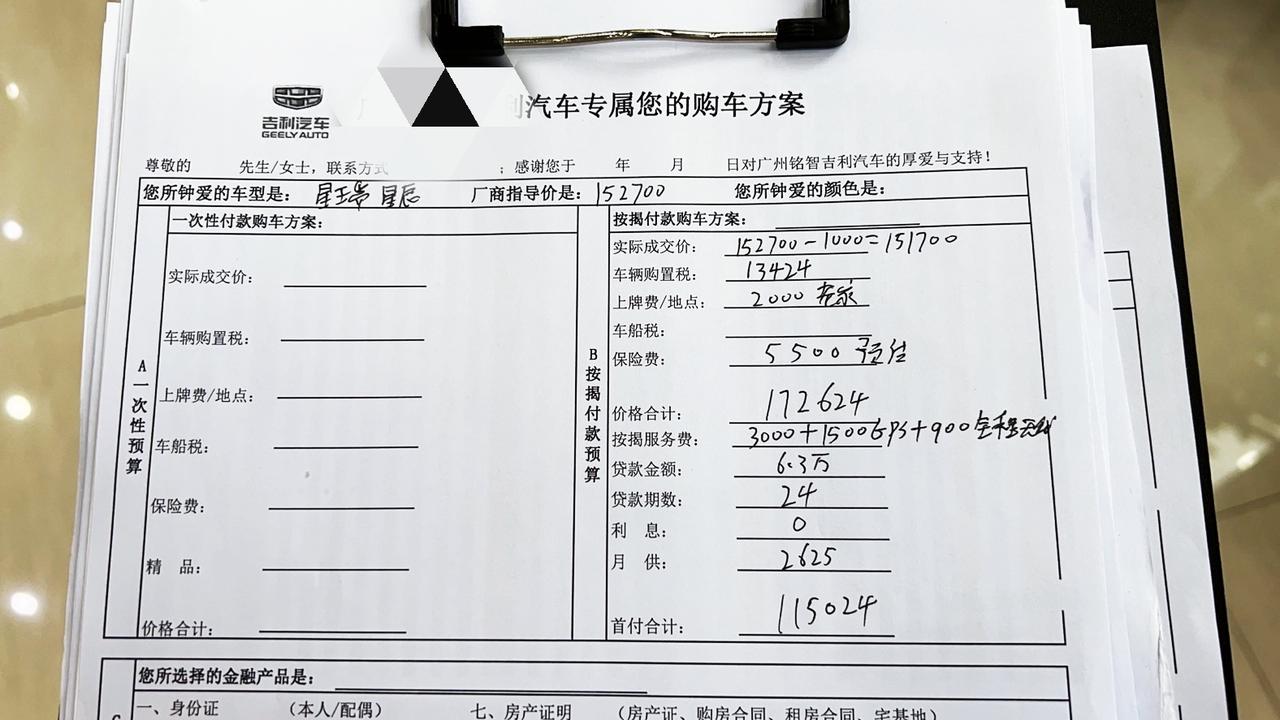 吉利汽车
GEELY AUTO
利汽车专属您的购车方案
尊敬的 先生/女士，联系方式 ；感谢您于 年 月 日对广州铭智吉利汽车的厚爱与支持！
您所钟爱的车型是： 星辰 厂商指导价是：152700 您所钟爱的颜色是：
一次性付款购车方案：
A一次性预算
实际成交价：
车辆购置税：
上牌费/地点：
车船税：
保险费：
精 品：
价格合计：
按揭付款购车方案：
B按揭付款预算
实际成交价： 152700-1000=151700
车辆购置税： 13424
上牌费/地点： 2000
车船税：
保险费： 5500 预估
价格合计： 172624
按揭服务费： 3000+1500GPS+900
贷款金额： 6.3万
贷款期数： 24
利 息： 0
月 供： 2625
首付合计： 115024
您所选择的金融产品是：
一、身份证 （本人/配偶） 七、房产证明 （房产证、购房合同、租房合同、宅基地）